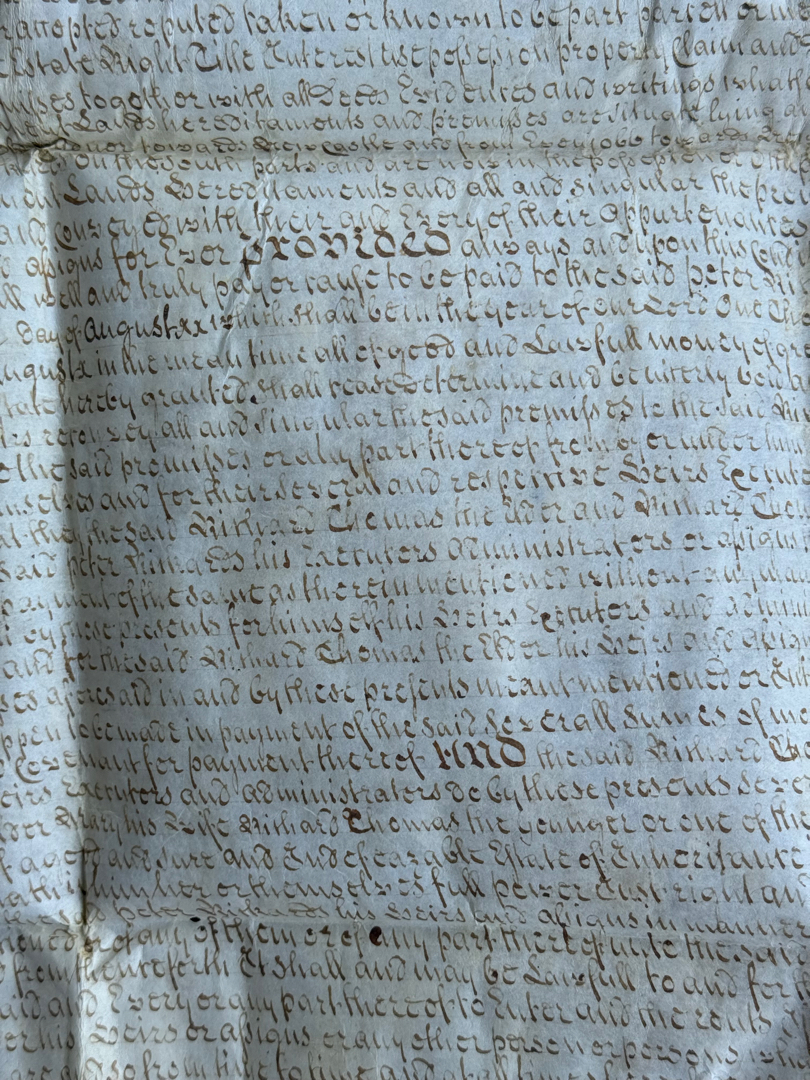 accepted reputed taken or known to be part parcell or m
Estate Right Title Interest use possession property Claim and
together with all Deeds Evidences and writings what
Lands hereditaments and premisses are situate lying a
towards New Castle and from
on the south parts and are now in the possession of
Lands Hereditaments and all and singular the pre
and Conveyed with their and Every of their Appurtenances
assigns for Ever PROVIDED always and upon this Cond
well and truly pay or cause to be paid to the said Peter Ri
day of August which shall be in the year of our Lord One Th
in the mean time all of good and Lawfull money of gr
hereby granted shall cease determine and be utterly void
reconvey all and singular the said premisses to the said Ri
the said premisses or any part thereof from or under him
and for their several and respective Heirs Executo
the said Richard Thomas the Elder and Richard Thom
said Peter Rickards his Executors Administrators or assigns
payment of the same as therein mentioned without any man
by these presents for himself his Heirs Executors and Admini
and for the said Richard Thomas the Elder his Heirs and assign
aforesaid in and by these presents meant mentioned or Int
be made in payment of the said severall sumes of mo
Covenant for payment thereof AND the said Richard Th
eirs Executors and administrators do by these presents seve
Mary his Wife Richard Thomas the younger or one of the
f a good and sure and Indefeazable Estate of Inheritance
hath in him her or themselves full power Just right an
Peter Rickards his Heirs and assigns in manner
or of any of them or of any part thereof unto the said
from thenceforth Et shall and may be Lawfull to and for
and Every or any part thereof to Enter and the rents
or his Heirs or assigns or any other person or persons wh
so from time to time and